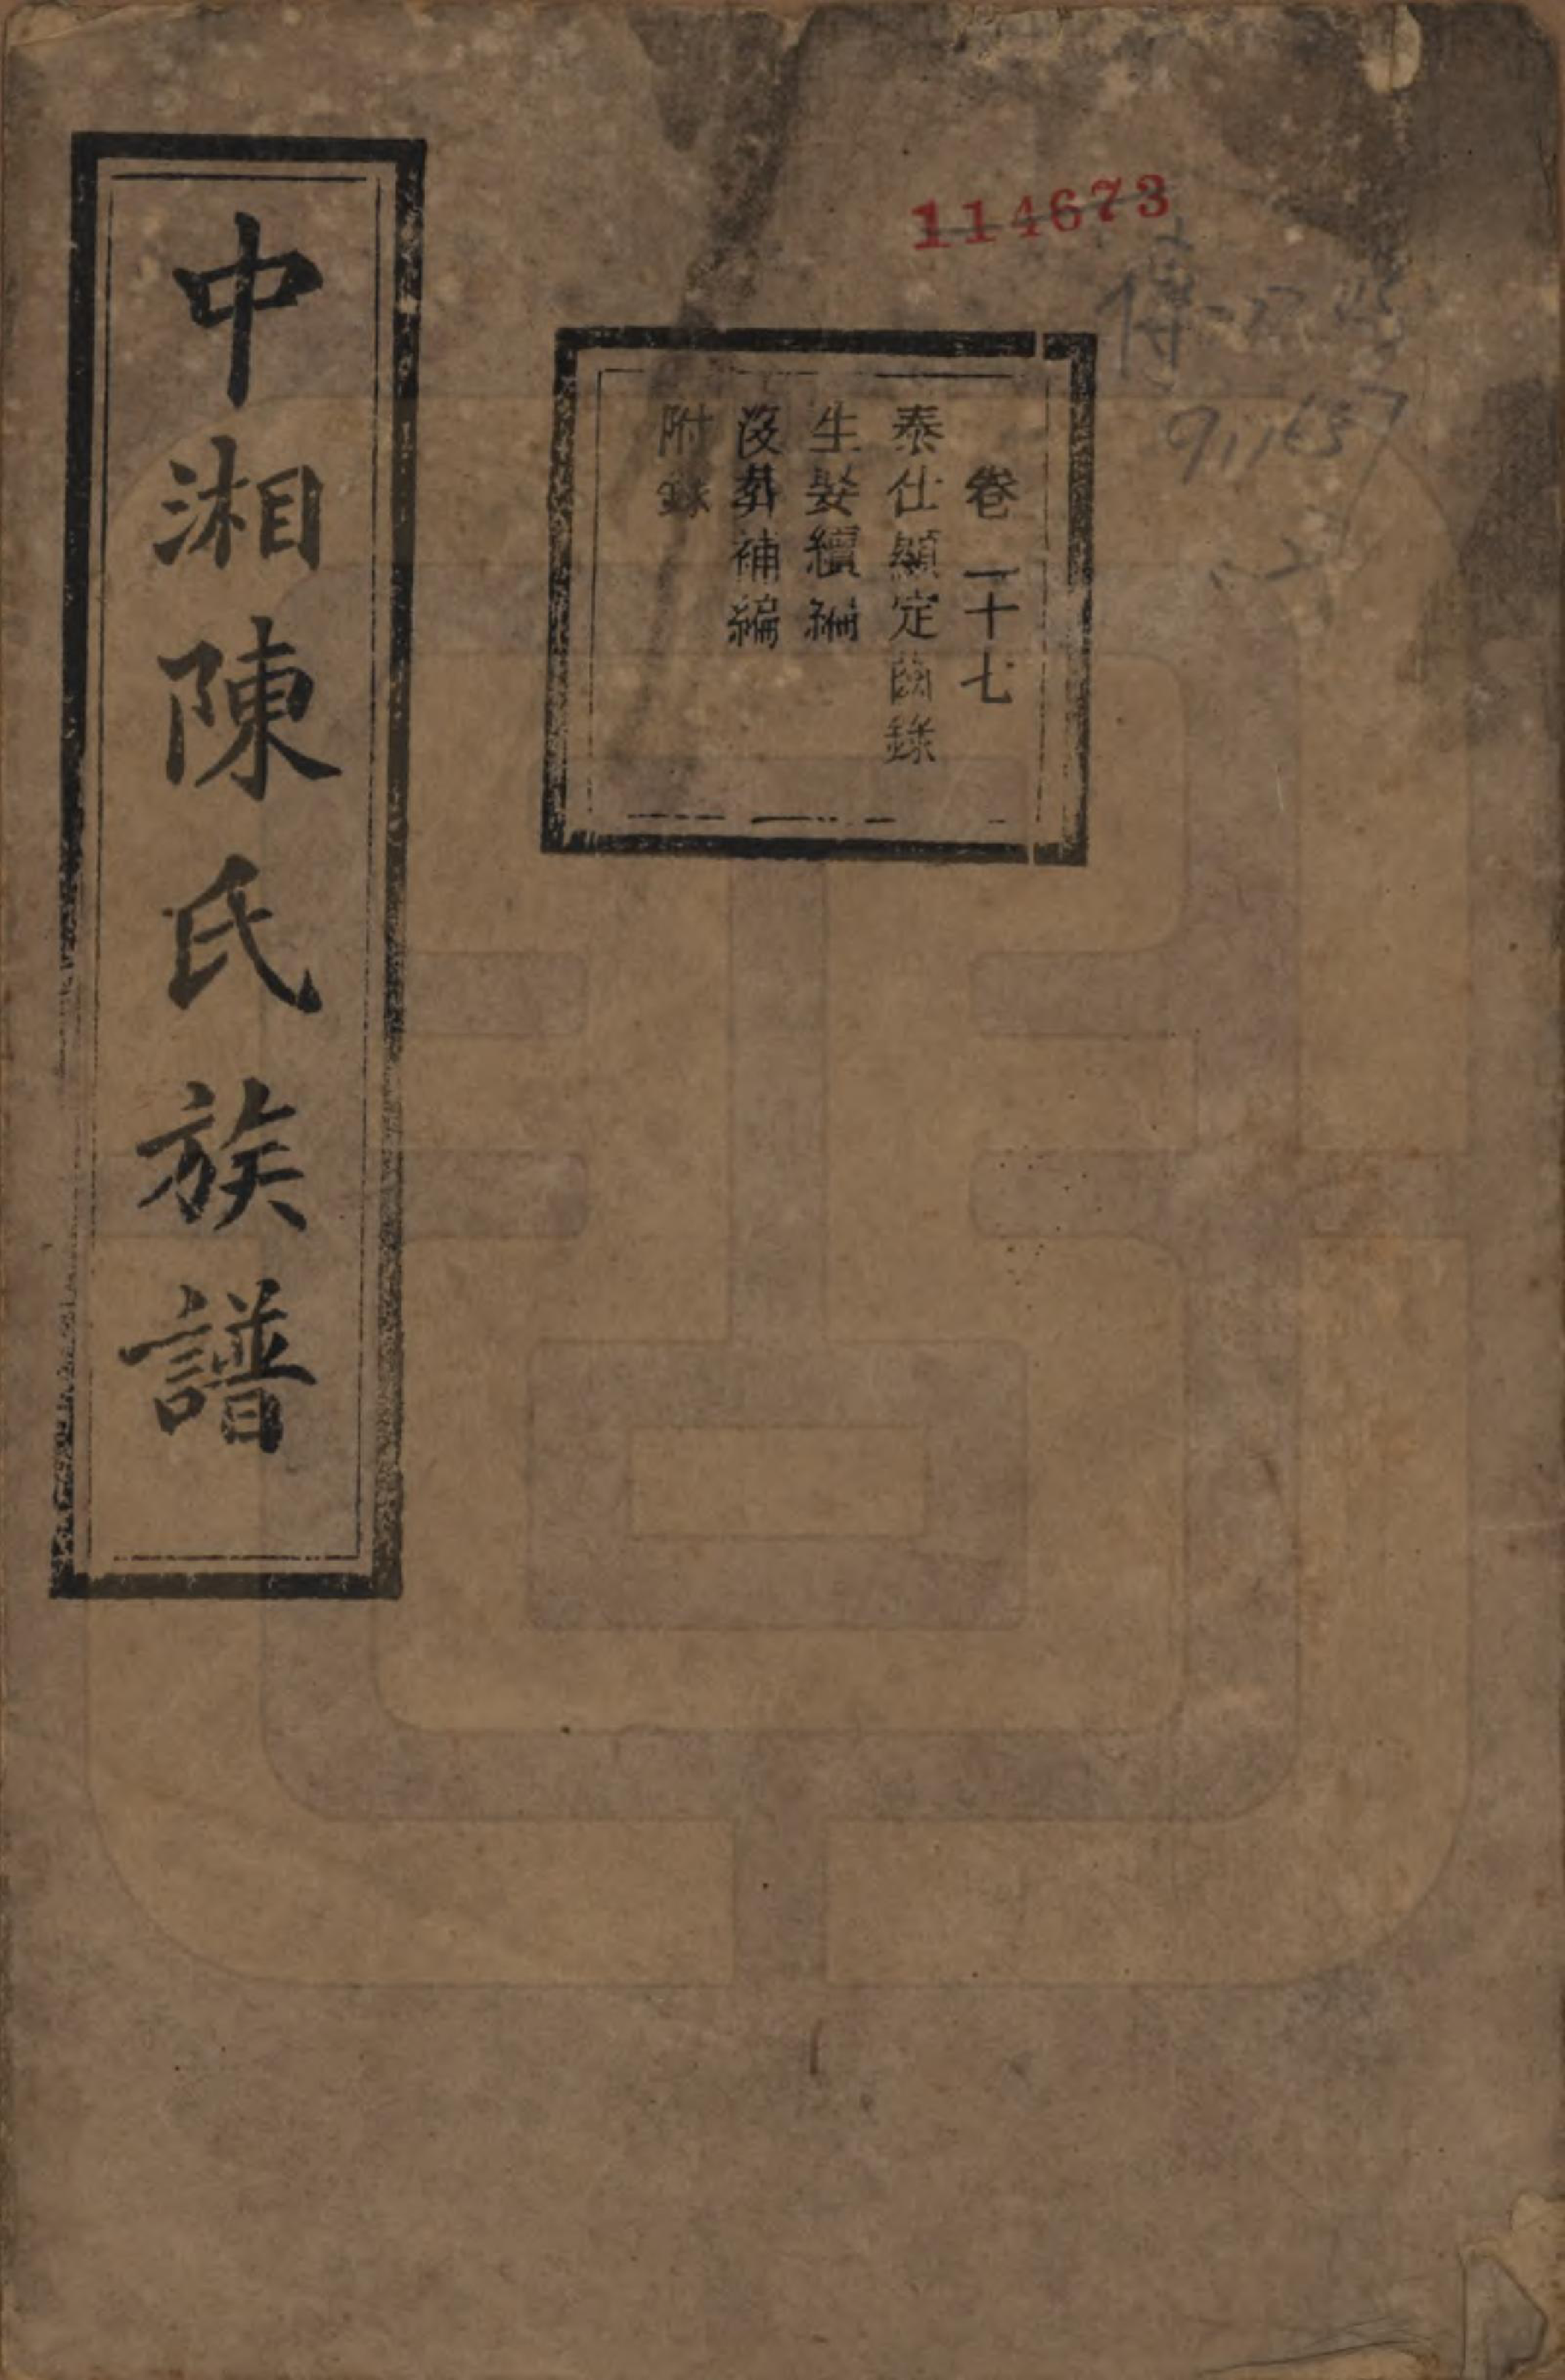 114673
傳
911657
卷二十七
泰仕顯定齒錄
生娶續編
沒葬補編
附錄
中湘陳氏族譜